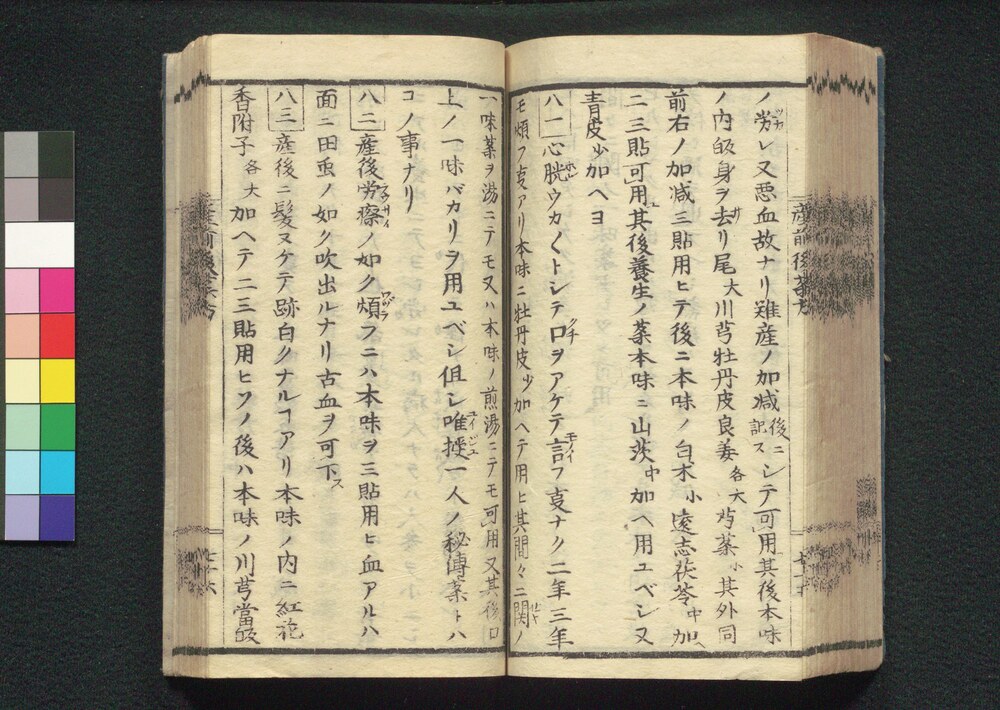 ノ労レ又悪血故ナリ難産ノ加減後ニ記スシテ可用其後本味
ノ内皈身ヲ去リ尾大川芎牡丹皮良姜各大芍薬小其外同
前右ノ加減三貼用ヒテ後ニ本味ノ白朮小遠志茯苓中加ヘ
二三貼可用其後養生ノ薬本味ニ山茨中加ヘ用ユベシ又
青皮少加ヘヨ
八一心胱ウカ〱トシテ口ヲアケテ言フ㕝ナク二年三年
モ煩フ㕝アリ本味ニ牡丹皮少加ヘテ用ヒ其間々ニ関ノ
一味薬ヲ湯ニテモ又ハ本味ノ煎湯ニテモ可用又其後口
上ノ一味バカリヲ用ユベシ但シ唯授一人ノ秘傳薬トハ
コノ事ナリ
八二産後労瘵ノ如ク煩フニハ本味ヲ三貼用ヒ血アルハ
面ニ田虫ノ如ク吹出ルナリ古血ヲ可下ス
八三産後ニ髪ヌケテ跡白クナルヿアリ本味ノ内ニ紅花
香附子各大加ヘテ二三貼用ヒソノ後ハ本味ノ川芎當皈